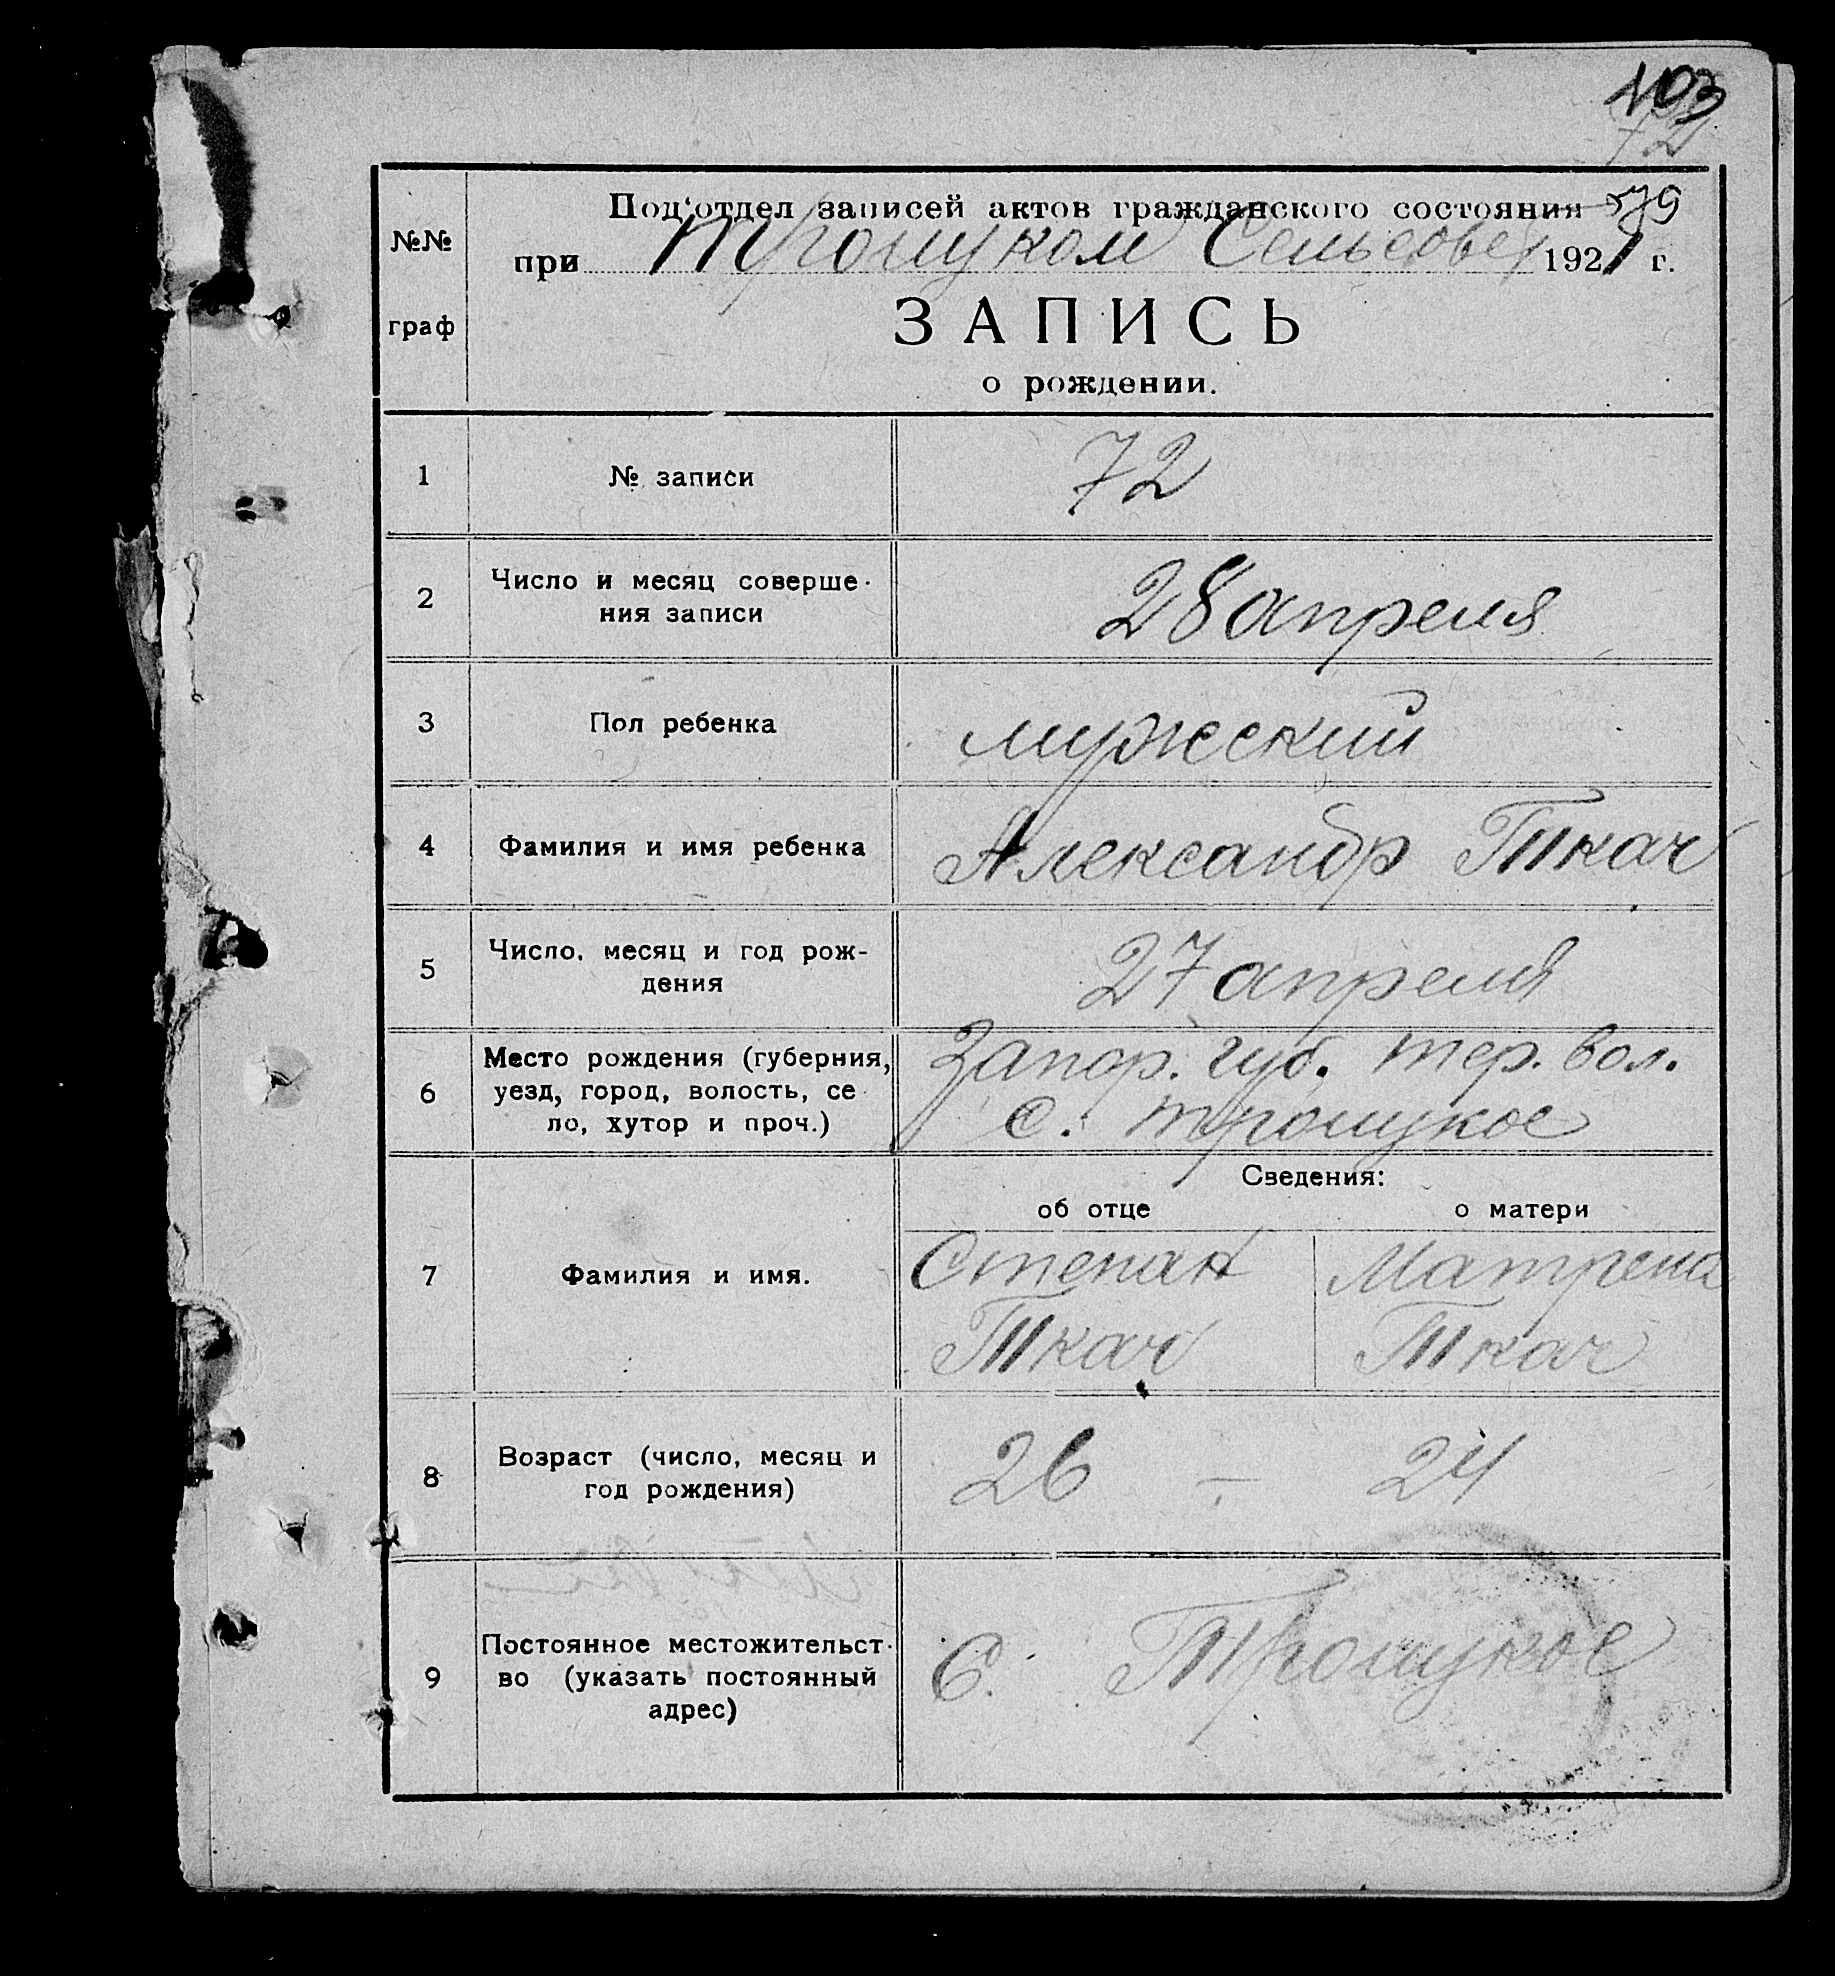 103
72
Под'отдел записей актов гражданского состояния 79
№№ граф
при Троицком Сельсовет 1921 г.
ЗАПИСЬ
о рождении.
1 № записи 72
2 Число и месяц соверше-
ния записи 28 апреля
3 Пол ребенка мужеский
4 Фамилия и имя ребенка Александр Ткач
5 Число, месяц и год рож-
дения 27 апреля
6 Место рождения (губерния, Запор. губ. тер. вол.
уезд, город, волость, се
ло, хутор и проч.) С. Троицкое
Сведения:
об отце о матери
7 Фамилия и имя. Степан Матрена
Ткач Ткач
8 Возраст (число, месяц и
год рождения) 26 - 24
9 Постоянное местожительст-
во (указать постоянный
адрес) С. Троицкое